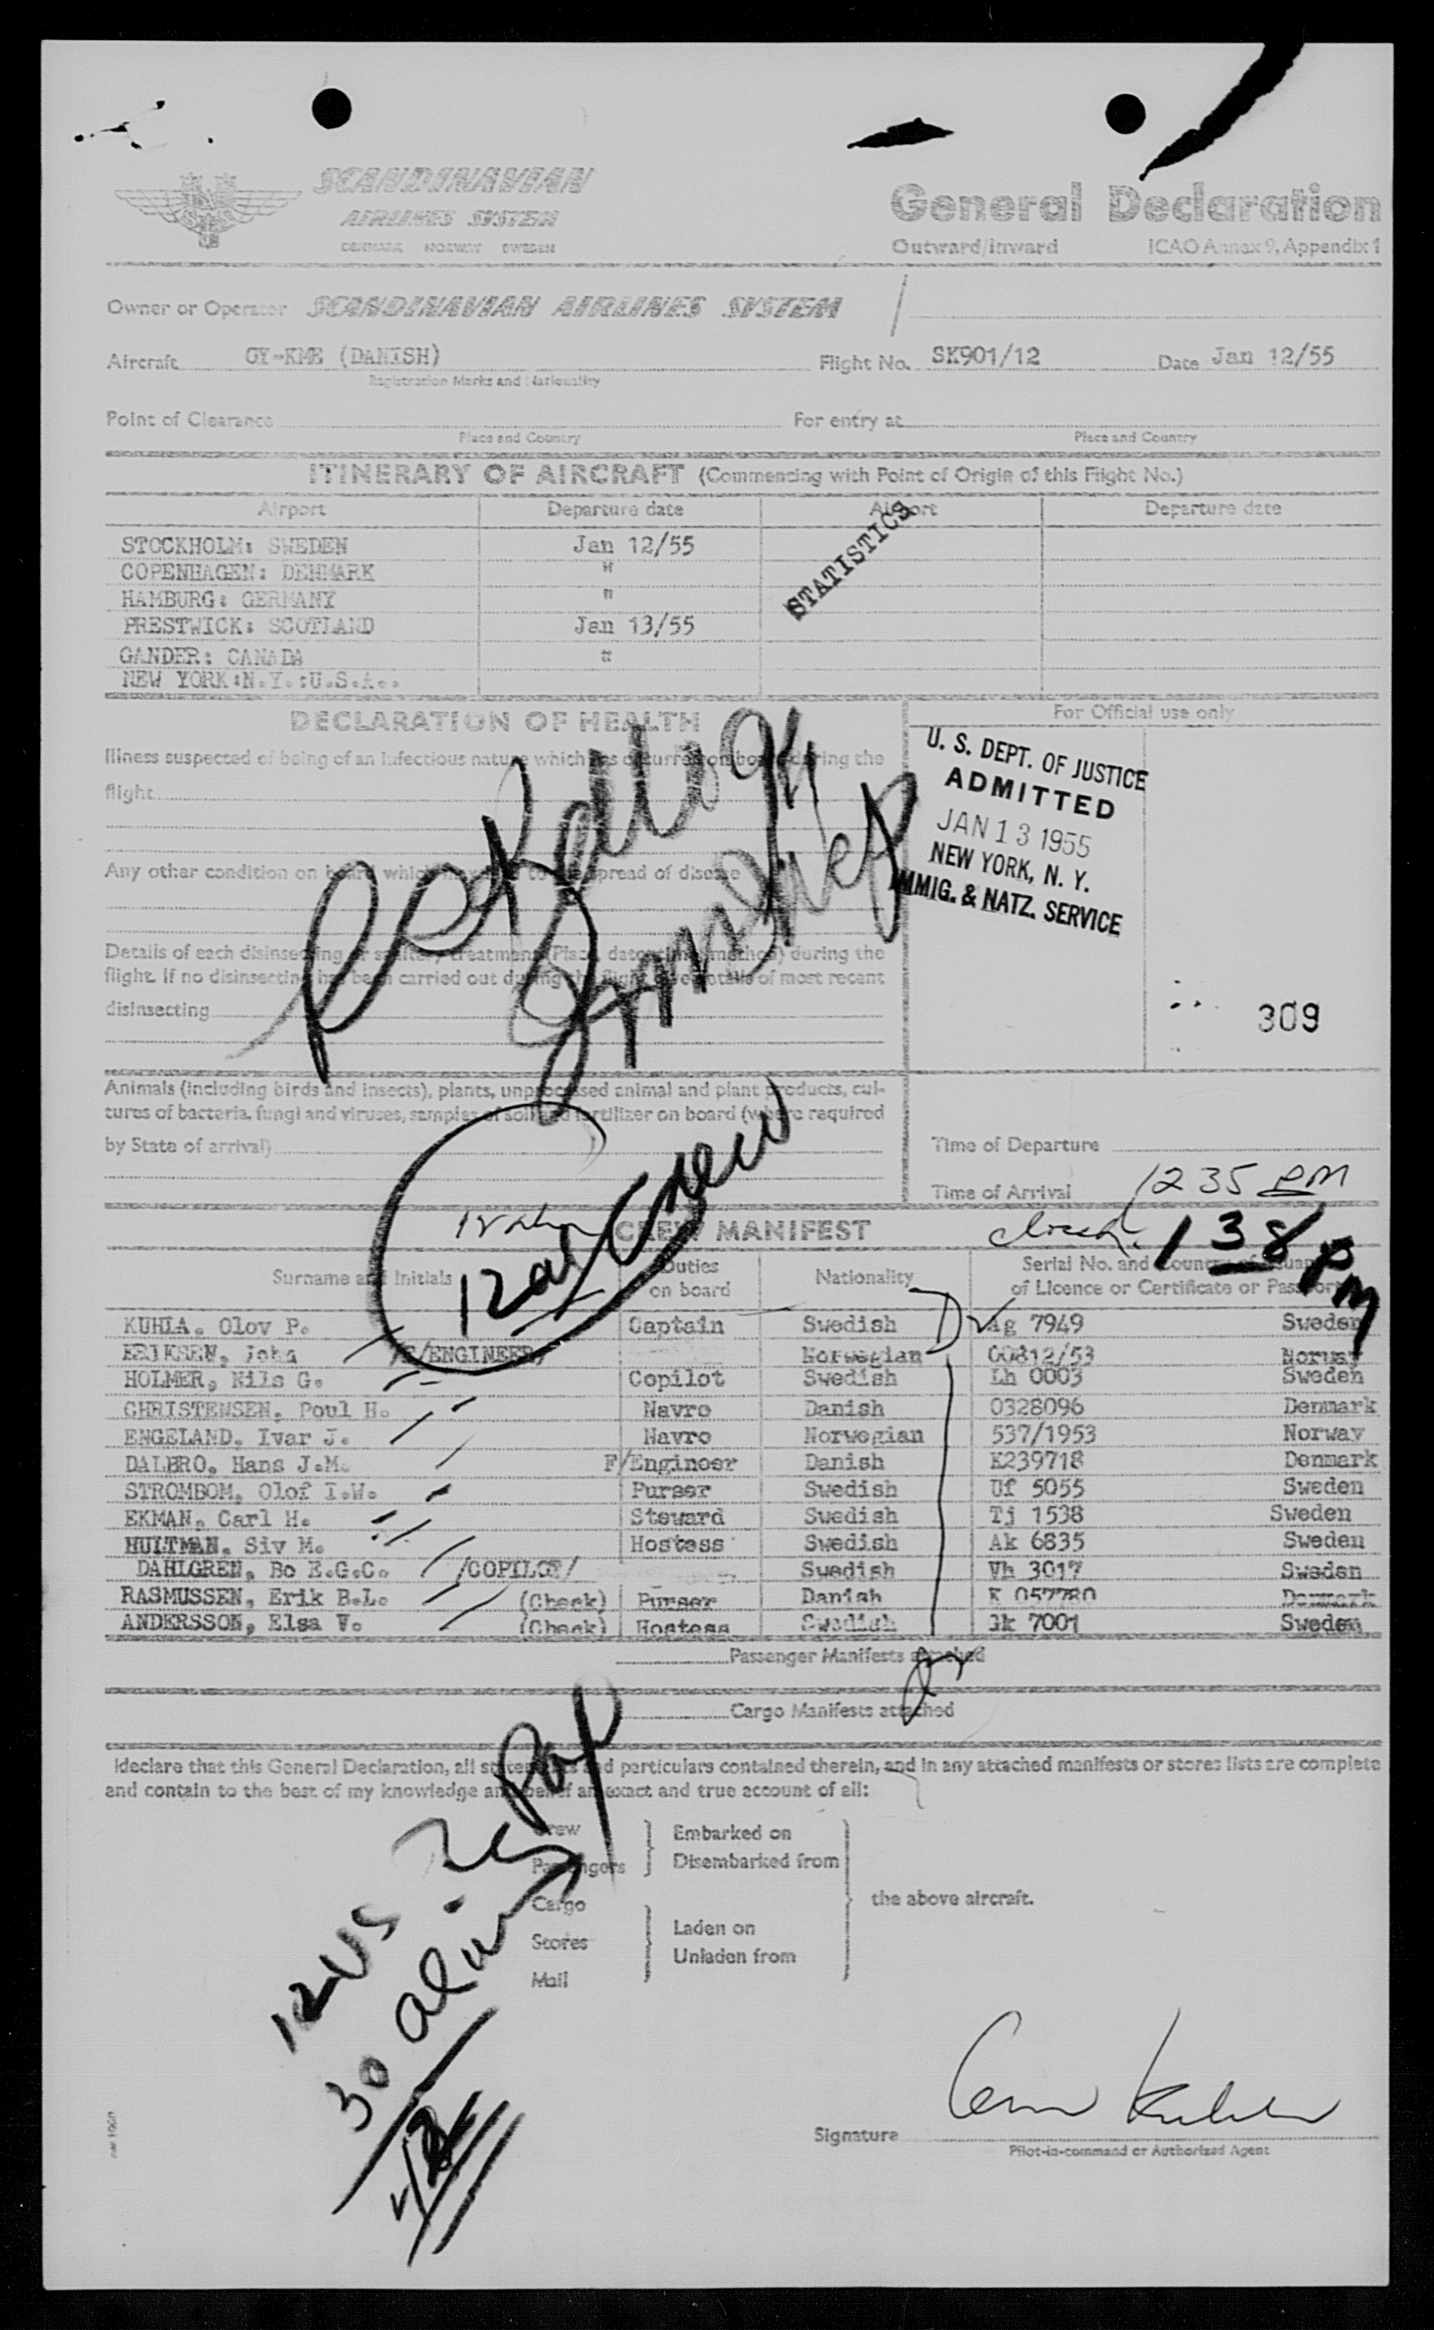 SCANDINAVIAN
AIRLINES SYSTEM
DENMARK NORWAY SWEDEN
General Declaration
Outward/Inward ICAO Annex 9, Appendix 1
Owner or Operator SCANDINAVIAN AIRLINES SYSTEM
Aircraft OY-KME (DANISH) Flight No. SK901/12 Date Jan 12/55
Registration Marks and Nationality
Point of Clearance For entry at
Place and Country Place and Country
ITINERARY OF AIRCRAFT (Commencing with Point of Origin of this Flight No.)
Airport Departure date Airport Departure date
STATISTICS
STOCKHOLM: SWEDEN Jan 12/55
COPENHAGEN: DENMARK "
HAMBURG: GERMANY "
PRESTWICK: SCOTLAND Jan 13/55
GANDER: CANADA "
NEW YORK:N.Y.:U.S.A..
DECLARATION OF HEALTH
For Official use only
Illness suspected of being of an infectious nature which has occurred on board during the
flight
U. S. DEPT. OF JUSTICE
ADMITTED
JAN 13 1955
NEW YORK, N. Y.
IMMIG. & NATZ. SERVICE
Any other condition on board which may lead to the spread of disease
Details of each disinsecting or sanitary treatment (Place, date, time, method) during the
flight. If no disinsecting has been carried out during the flight give details of most recent
disinsecting
309
Animals (including birds and insects), plants, unprocessed animal and plant products, cul-
tures of bacteria, fungi and viruses, samples of soil and fertilizer on board (where required
by State of arrival)
Time of Departure
Time of Arrival 1235 PM
138 pm
12 al Crew
CREW MANIFEST
Surname and Initials Duties on board Nationality Serial No. and Country of Issuance of Licence or Certificate or Passport
KUHLA. Olov P. Captain Swedish Ag 7949 Sweden
ERIKSEN, John /F/ENGINEER/ Norwegian 00812/53 Norway
HOLMER, Nils G. Copilot Swedish Lh 0003 Sweden
CHRISTENSEN. Poul H. Navro Danish 0328096 Denmark
ENGELAND. Ivar J. Navro Norwegian 537/1953 Norway
DALBRO. Hans J.M. F/Engineer Danish K239718 Denmark
STROMBOM. Olof I.W. Purser Swedish Uf 5055 Sweden
EKMAN. Carl H. Steward Swedish Tj 1538 Sweden
HULTMAN. Siv M. Hostess Swedish Ak 6835 Sweden
DAHLGREN, Bo E.G.C. /COPILOT/ Swedish Vh 3017 Sweden
RASMUSSEN, Erik B.L. (Check) Purser Danish K 057780 Denmark
ANDERSSON, Elsa V. (Check) Hostess Swedish Gk 7001 Sweden
Passenger Manifests attached
Cargo Manifests attached
I declare that this General Declaration, all statements and particulars contained therein, and in any attached manifests or stores lists are complete
and contain to the best of my knowledge and belief an exact and true account of all:
Crew
Passengers
Embarked on
Disembarked from
Cargo
Stores
Mail
Laden on
Unladen from
the above aircraft.
12 US
30 alien
42
Signature
Pilot-in-command or Authorized Agent